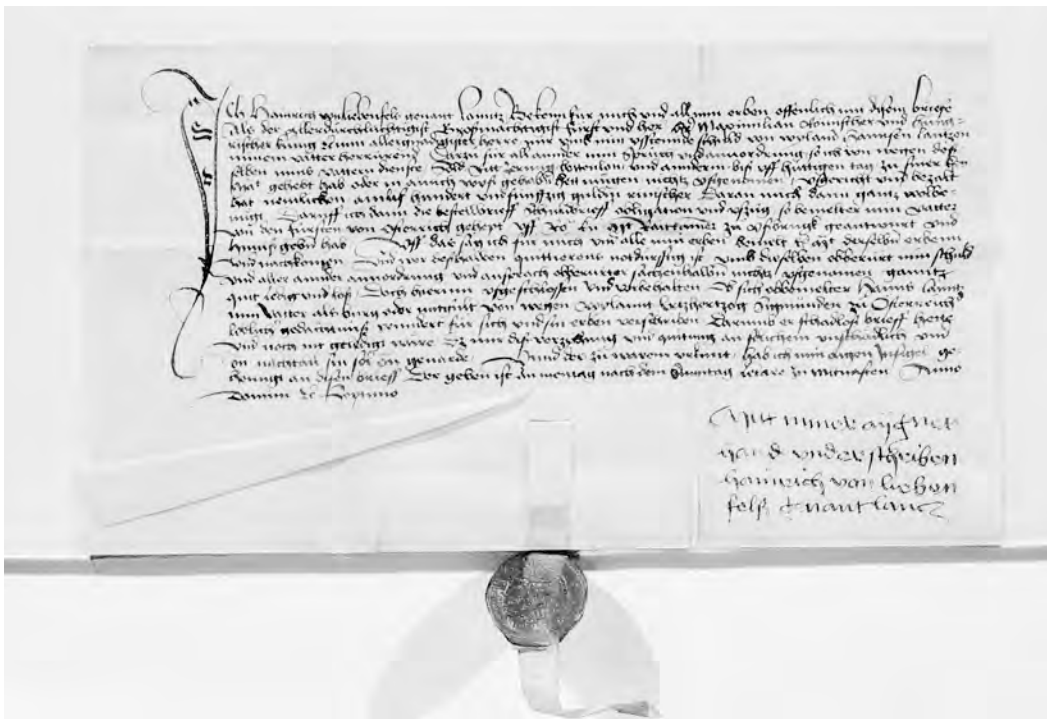 Ich Hainrich von Liebenfels genant Lanntz Bekenn für mich und all min erben offenlich mit disem brieve
Als der Allerdurchlüchtigist Großmechtigist fürst und her her Maximilian Römischer und Hung-
rischer kung min allergnädigister herre mir umb min schuld von wyland Hannsen Lantzen
minem vatter herrürend Dartzu für all annder min Sprüch und anvordrung so ich von wegen des-
selben mins vatters dienste und annderm bis uff hüttigen tag zu siner kün
gehept hab oder in ainich wys gehaben möchte nichtz usgenomen usgericht und bezalt
hat nemlichen hundert und funffzig guldin rinischer Daran mich dann gantz wolbe-
nügt Daruff ich dann die bestellbrieff Schuldbrieff obligation und so bemelter min vatter
von den fürsten von Österrich gehept uff zu geantwurt und
hinuß geben hab Uff das sag ich für mich und alle min erben derselben erben
und nachkomen und wer deßhalben quittierens notdürfftig ist umb dieselben obberürt min schuld
und aller annder anvordrung und ansprach obberürter sachenhalben nichtz usgenomen gantz
quit ledig und los Doch hierinn usgeschlossen und vorbehalten Ob sich obbemelter Hanns Lanntz
min vatter als bürg oder mitgült von wegen wylannd Ertzhertzog Sigmunden zu Österrich
löblich gedächtnuß für sich und sin erben verschriben Darumb er schadloß brieff hette
und noch nit geledigt were Es mir dis verzyhung und quittung an solichem unschädlich und
on nachtail sin sol on geuarde Unnd des zu warem vrkunt hab ich min aigen Insigel ge-
henngt an disen brieff Der geben ist An mentag nach dem Sonntag letare zu mitvasten Anno
Domini Septimo
Mitt miner aigner
hand underschriben
hainrich von lieben
fels genant lancz